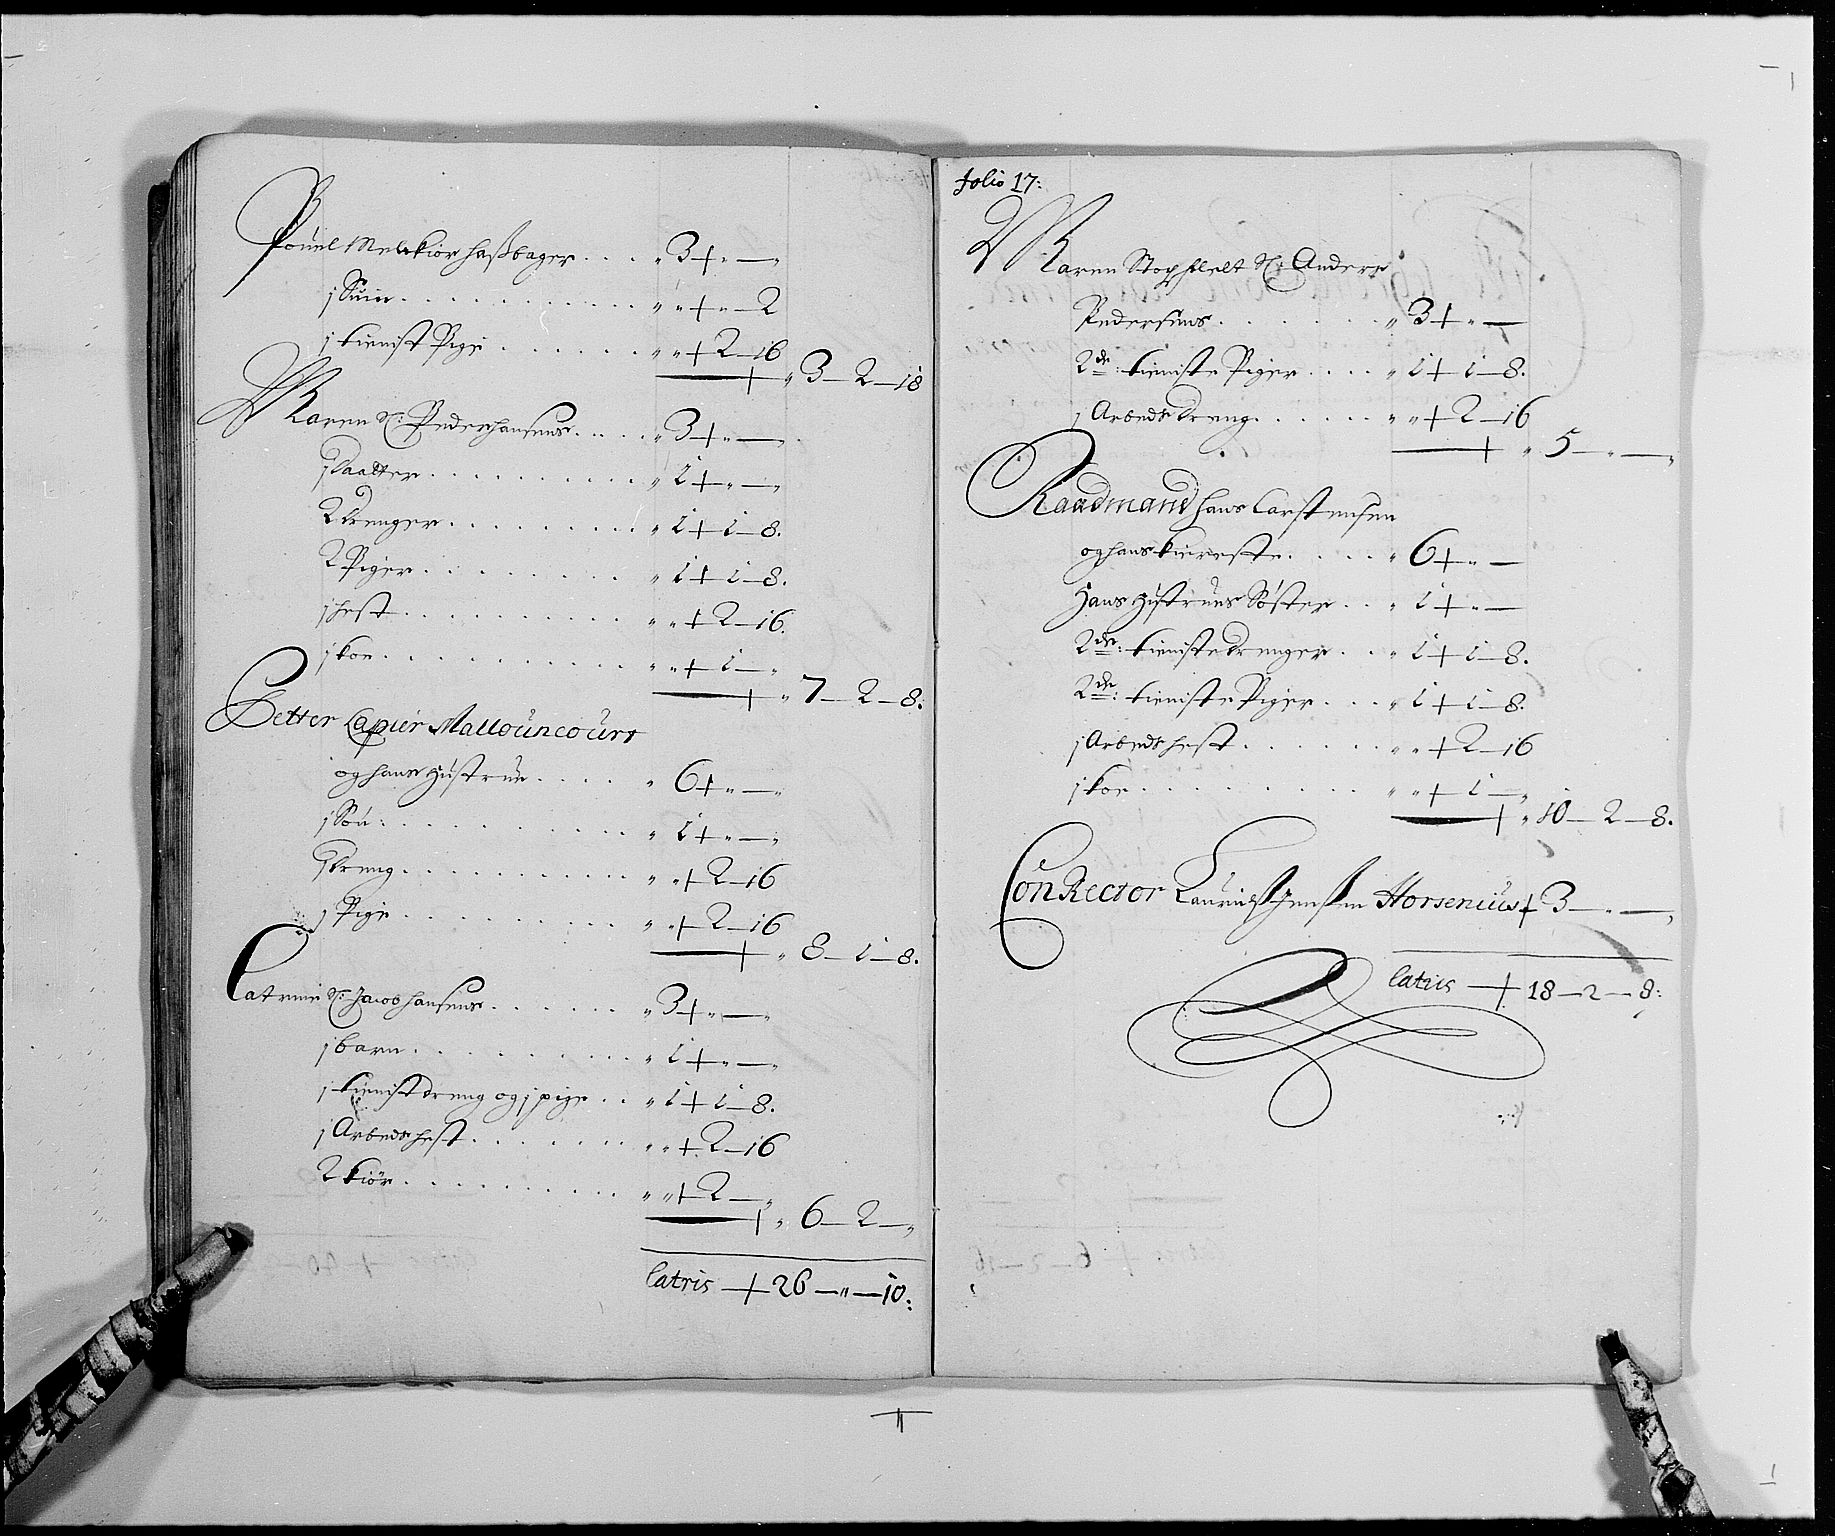 Pouel Melckior Hassbager . . . . " 3 + " —
j Suin . . . . . . . . . . " " + " — 2
j tienist Pige . . . . . . . " " + 2 — 16
+ " 3 — 2 — 18
Karen Sl: Peder Hansens . . . . " 3 + " —
j daatter . . . . . . . . . . " 1 + " —
2 drenger . . . . . . . . . " 1 + 1 — 8.
2 Piger . . . . . . . . . . " 1 + 1 — 8.
j hest . . . . . . . . . . " " + 2 — 16.
j koe . . . . . . . . . . " " + 1 — "
+ " 7 — 2 — 8.
Petter Capier Mallouncourt
og hans Hustrue . . . . . " 6 + " —
j Søn . . . . . . . . . . " 1 + " —
j dreng . . . . . . . . . . " " + 2 — 16
j Pige . . . . . . . . . . " " + 2 — 16
+ " 8 — 1 — 8.
Catrine Sl: Jacob Hansens . . . . . . " 3 + " —
j barn . . . . . . . . . " 1 + " —
j tienist dreng og j pige . . " 1 + 1 — 8.
j Arbeds hest . . . . . . . " " + 2 — 16
2 kiør . . . . . . . . . . " " + 2 — "
+ " 6 — 2 — "
Latris + 26 — " — 10:
folio 17:
Karen Sl: Anders
Pedersens . . . . . . . " 3 + " —
2de: tieniste Piger . . . . " 1 + 1 — 8.
j Arbeds dreng . . . . . . " " + 2 — 16
+ " 5 — " —
Raadmand Hans Carstensen
og hans kiereste . . . . . " 6 + " —
Hans Hustrues Søster . . . " 1 + " —
2de: tieniste drenger . . . " 1 + 1 — 8.
2de: tieniste Piger . . . . " 1 + 1 — 8.
j Arbeds hest . . . . . . . " " + 2 — 16
j koe . . . . . . . . . " " + 1 — "
+ " 10 — 2 — 8.
ConRector Lauridtz Jensen Horsenius + 3 — " —
Latus + 18 — 2 — 8: